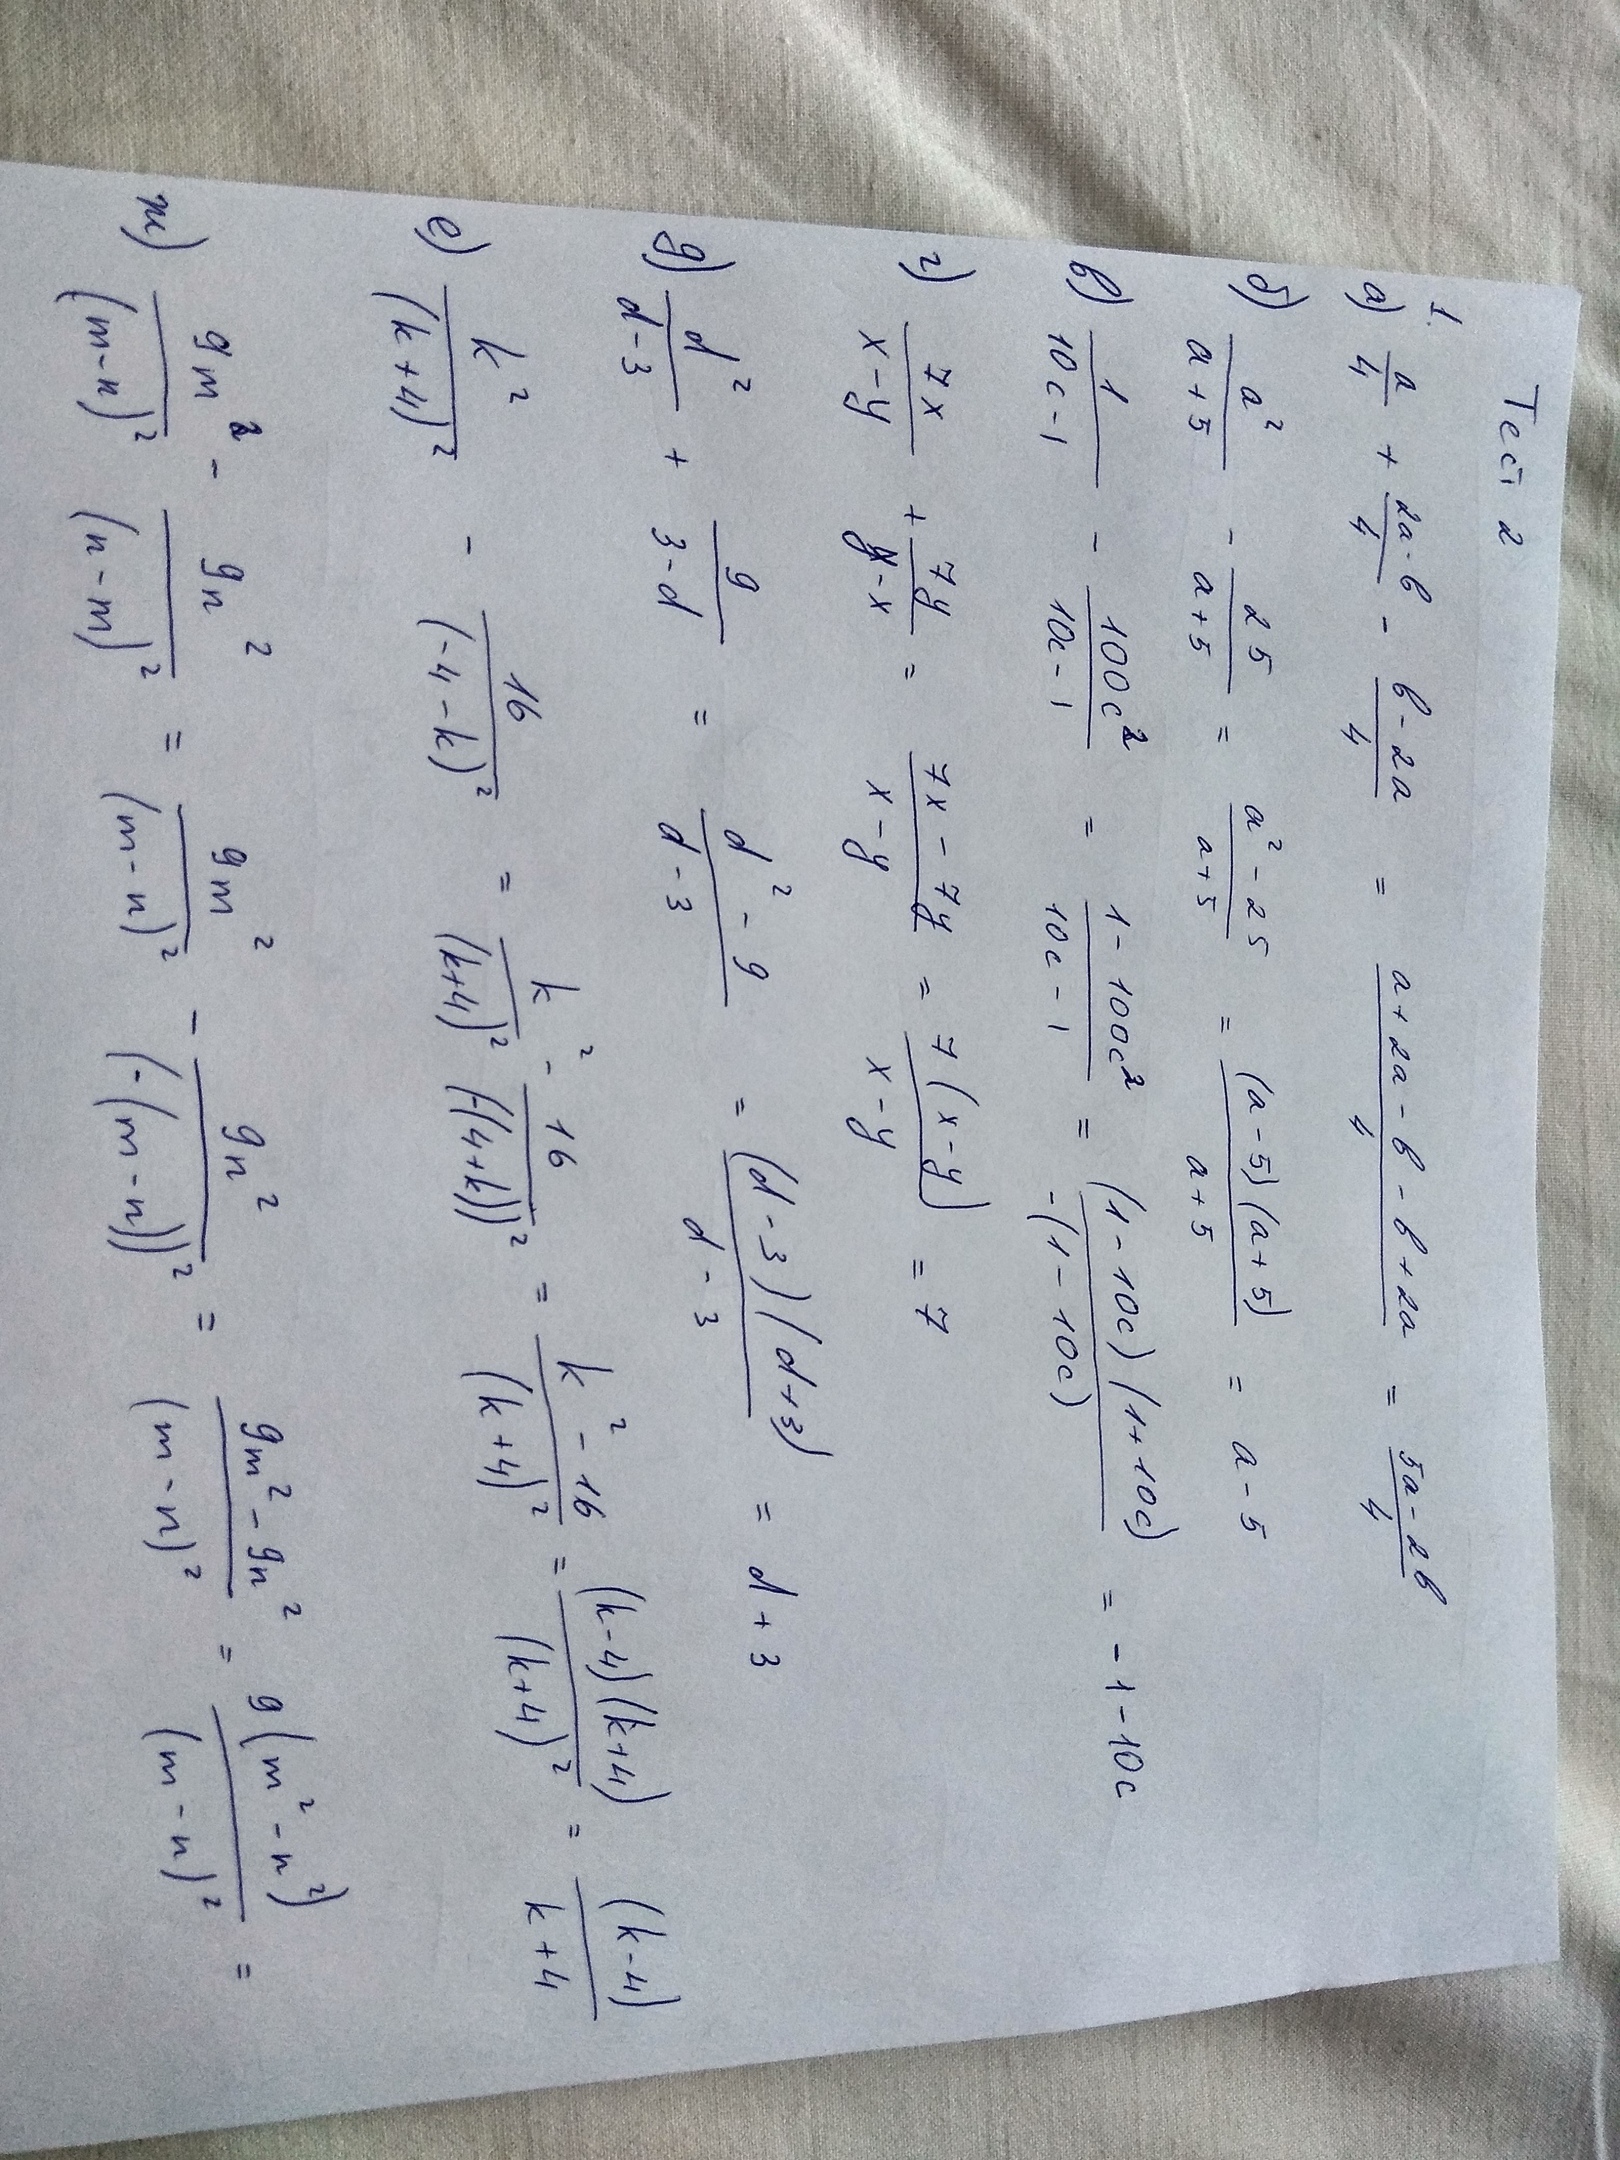 Тест 2
1.
а) a/4 + (2a-b)/4 - (b-2a)/4 = (a+2a-b-b+2a)/4 = (5a-2b)/4
б) a²/(a+5) - 25/(a+5) = (a²-25)/(a+5) = (a-5)(a+5)/(a+5) = a-5
в) 1/(10c-1) - 100c²/(10c-1) = (1-100c²)/(10c-1) = (1-10c)(1+10c)/(-(1-10c)) = -1-10c
г) 7x/(x-y) + 7y/(y-x) = (7x-7y)/(x-y) = 7(x-y)/(x-y) = 7
д) d²/(d-3) + 9/(3-d) = (d²-9)/(d-3) = (d-3)(d+3)/(d-3) = d+3
е) k²/(k+4)² - 16/(-4-k)² = k²/(k+4)² - 16/(-(4+k))² = (k²-16)/(k+4)² = (k-4)(k+4)/(k+4)² = (k-4)/(k+4)
ж) 9m²/(m-n)² - 9n²/(n-m)² = 9m²/(m-n)² - 9n²/(-(m-n))² = (9m²-9n²)/(m-n)² = 9(m²-n²)/(m-n)² =